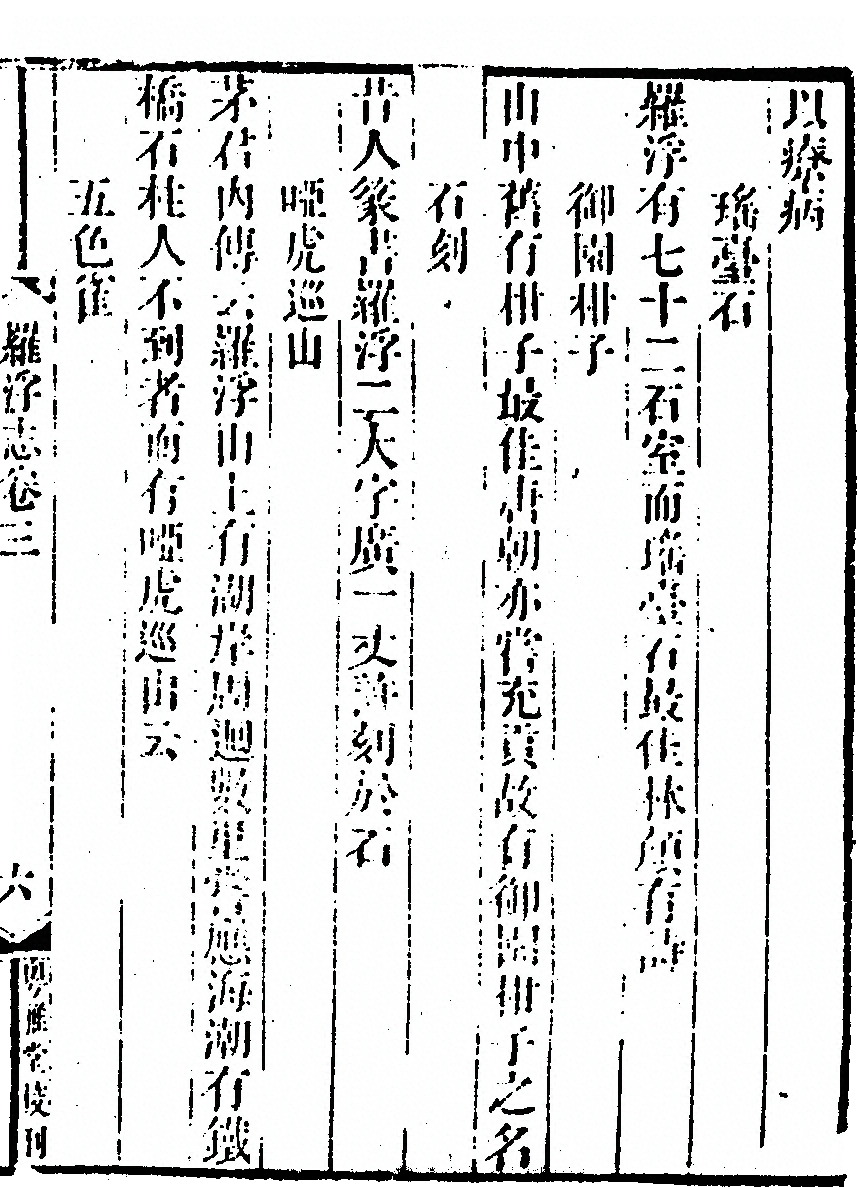 以療病
瑤臺石
羅浮有七十二石室而瑤臺石最佳林頎有詩
御園柑子
山中舊有柑子最佳唐朝亦嘗充貢故有御園柑子之名
石刻
昔人篆書羅浮二大字廣一丈許刻於石
啞虎巡山
茅君內傳云羅浮山上有湖岸周迴數里常應海潮有鐵
橋石柱人不到者而有啞虎巡山云
五色雀
羅浮志卷三
六
粵雅堂校刊